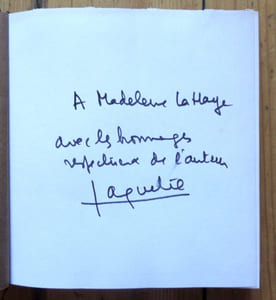 A Madeleine LaHaye
avec les hommages
respectueux de l'auteur